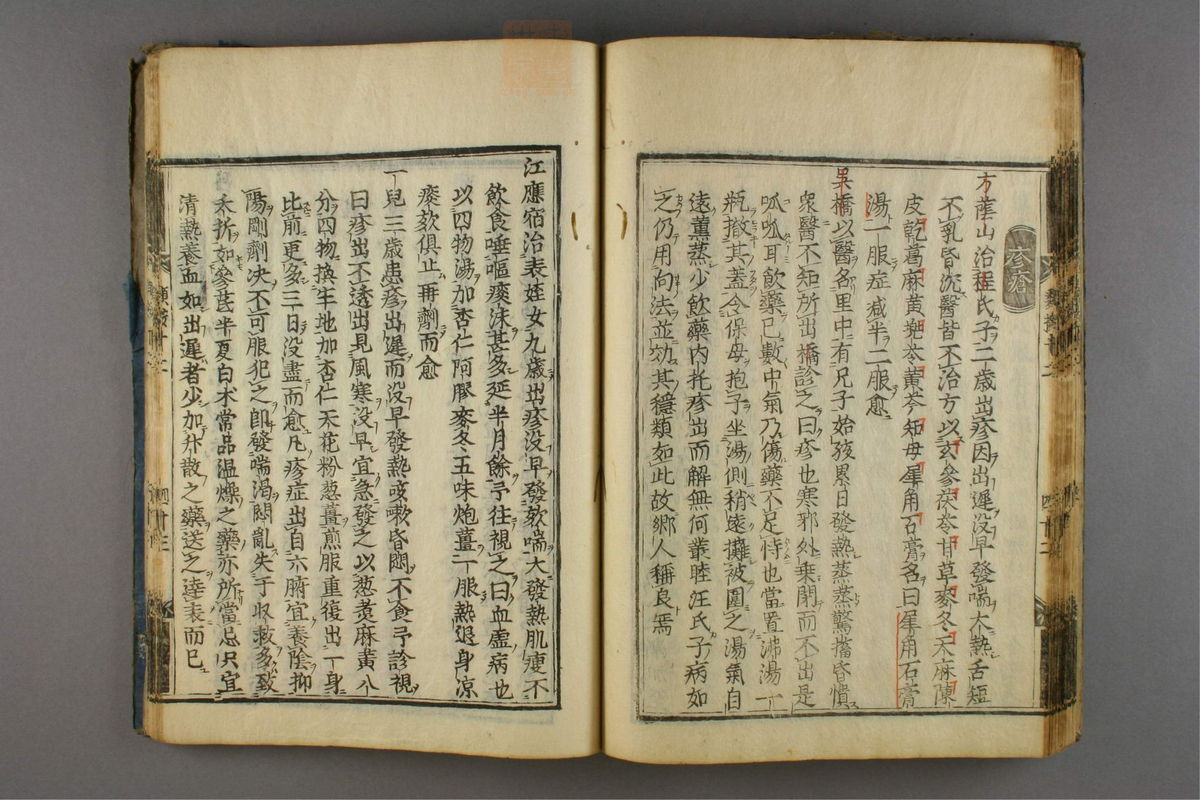 疹瘡
方蘖山治程氏子二歲出疹因出遲没早發喘大熱舌短
不乳昏沉醫皆不治方以玄參茯苓甘草麥冬禾麻陳
皮乾葛麻黃黃芩知母犀角石膏名曰犀角石膏
湯一服症減半二服愈
吴橋以醫名里中有兄子始孩累日發熱蒸蒸驚搐昏憒
衆醫不知所出橋診之曰疹也寒邪外乗閉而不出是
呱呱耳飲藥已數中氣乃傷藥不足恃也當置沸湯一
瓶撤其蓋令保母抱子坐湯側稍遠擁被圍之湯氣自
遠薰蒸少飲藥内托疹出而解無何叢睦汪氏子病如
之仍用向法並効其穩類如此故郷人稱良焉
江應宿治表姪女九歲出疹没早發欬喘大發熱肌瘦不
飲食唾嘔痰沫甚多延半月餘予往視之曰血虛病也
以四物湯加杏仁阿膠麥冬五味炮薑一服熱退身凉
痰欬俱止再劑而愈
一兒三歲患疹出遲而没早發熱咳嗽昏悶不食予診視
曰疹出不透出見風寒没早宜急發之以葱煑麻黃八
分四物換生地加杏仁天花粉葱薑煎服重復出一身
比前更多三日没盡而愈凡疹症出自六腑宜養陰抑
陽剛劑决不可服犯之卽發喘渴悶亂失于収救多致
夭折如參芪半夏白术常品温燥之藥亦所當忌只宜
清熱養血如出遲者少加升散之藥送之達表而已